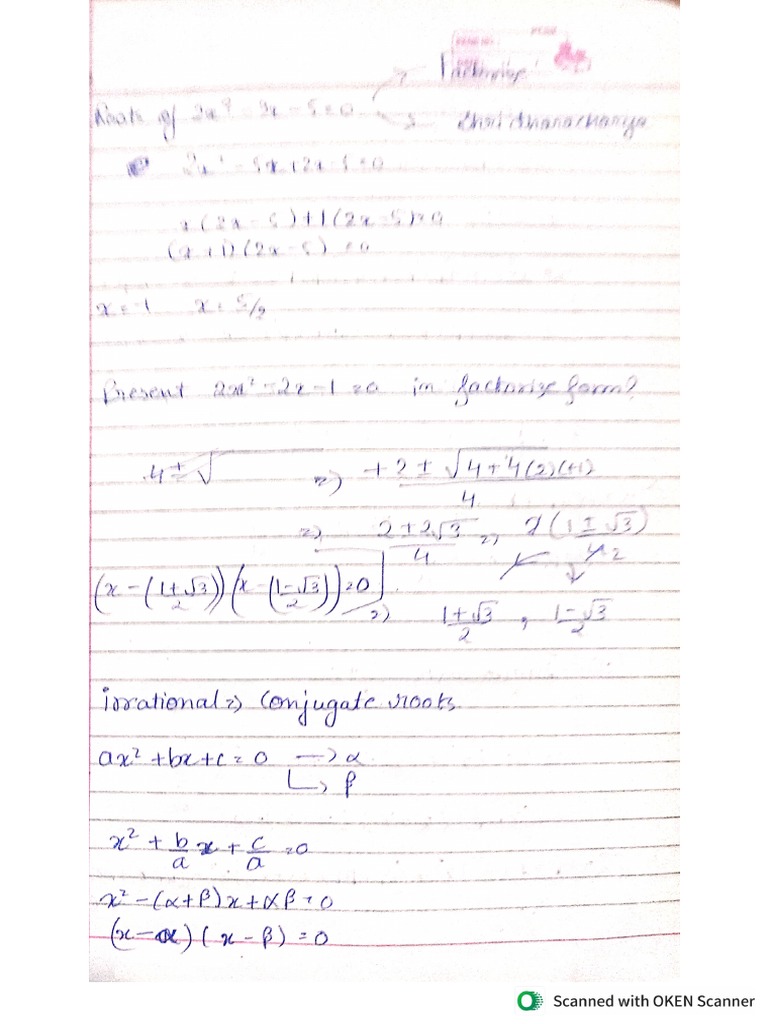 Factorize
Roots of 2x² - 3x - 5 = 0
Shri dharacharya
2x² - 5x + 2x - 5 = 0
x(2x - 5) + 1(2x - 5) = 0
(x + 1)(2x - 5) = 0
x = -1 x = 5/2
Present 2x² - 2x - 1 = 0 in factorize form?
4 ± √ => +2 ± √4 + 4(2)(+1) / 4
=> 2 ± 2√3 / 4 => 2(1 ± √3) / 4 2
(x - (1+√3 / 2))(x - (1-√3 / 2)) = 0
=> 1+√3 / 2 , 1-√3 / 2
irrational => Conjugate roots
ax² + bx + c = 0 → α
↳ β
x² + b/a x + c/a = 0
x² - (α + β)x + αβ = 0
(x - α)(x - β) = 0
Scanned with OKEN Scanner